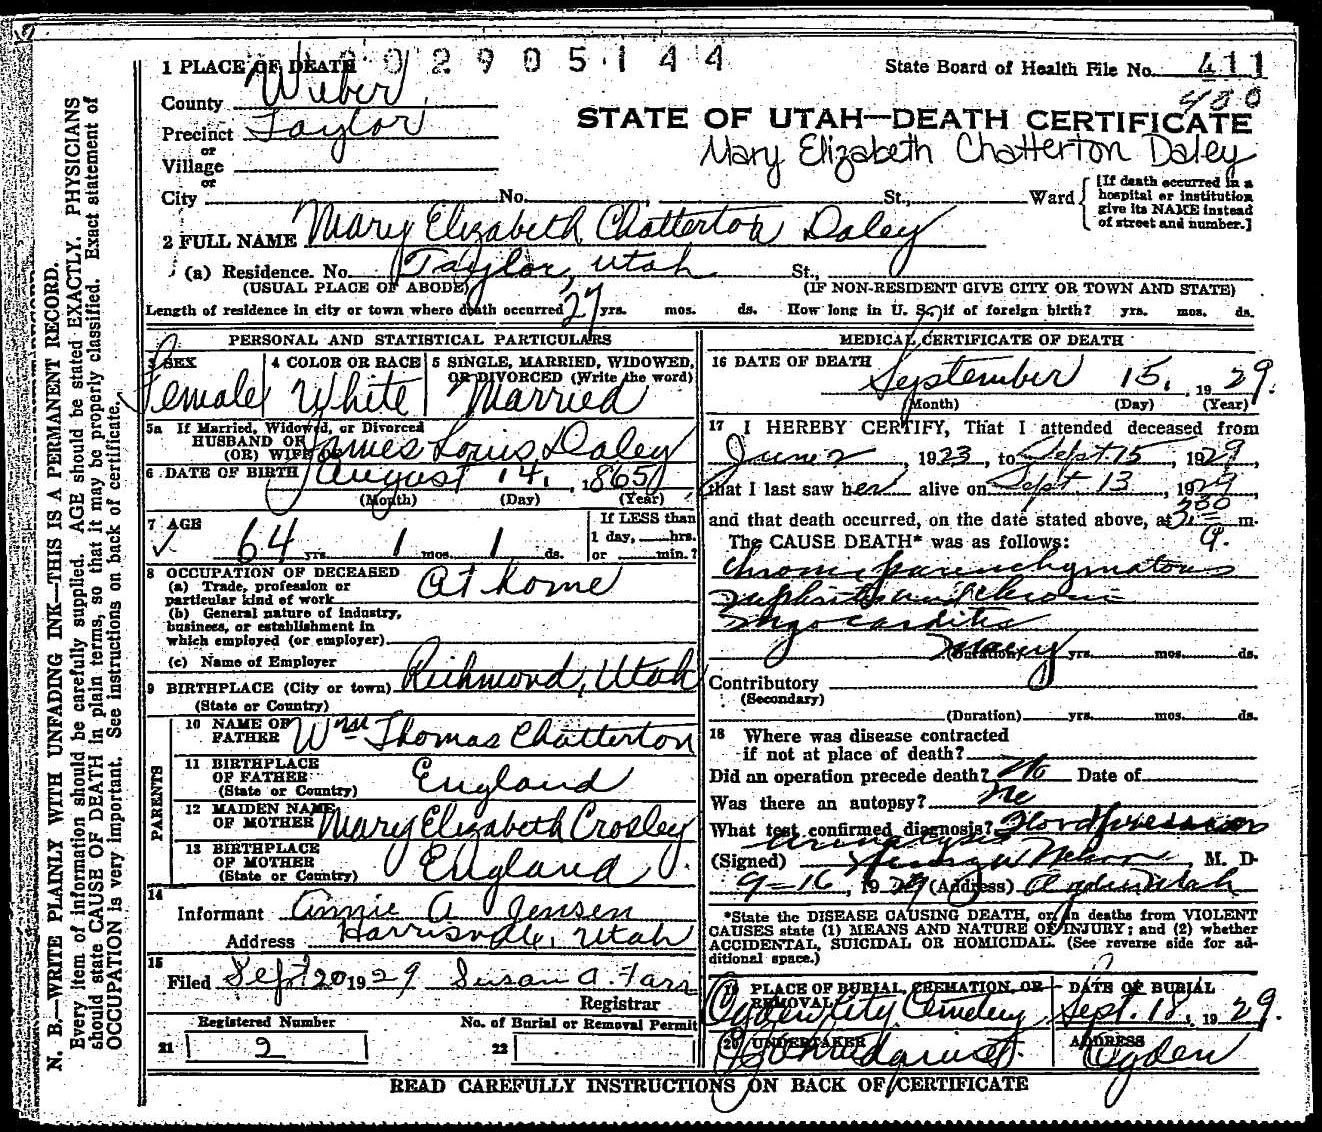 0 0 2 9 0 5 1 4 4
State Board of Health File No. 411
480
1 PLACE OF DEATH
County Weber
Precinct Taylor
or
Village
or
City No. St., Ward
[If death occurred in a hospital or institution give its NAME instead of street and number.]
STATE OF UTAH—DEATH CERTIFICATE
Mary Elizabeth Chatterton Daley
2 FULL NAME Mary Elizabeth Chatterton Daley
(a) Residence. No. Taylor, Utah St.,
(USUAL PLACE OF ABODE) (IF NON-RESIDENT GIVE CITY OR TOWN AND STATE)
Length of residence in city or town where death occurred 27 yrs. mos. ds. How long in U. S., if of foreign birth? yrs. mos. ds.
PERSONAL AND STATISTICAL PARTICULARS
3 SEX Female
4 COLOR OR RACE White
5 SINGLE, MARRIED, WIDOWED, OR DIVORCED (Write the word) Married
5a If Married, Widowed, or Divorced
HUSBAND OF
(OR) WIFE OF James Louis Daley
6 DATE OF BIRTH August 14, 1865
(Month) (Day) (Year)
7 AGE
64 yrs. 1 mos. 1 ds.
If LESS than
1 day, hrs.
or min.?
8 OCCUPATION OF DECEASED
(a) Trade, profession or
particular kind of work At home
(b) General nature of industry,
business, or establishment in
which employed (or employer)
(c) Name of Employer
9 BIRTHPLACE (City or town) Richmond, Utah
(State or Country)
PARENTS
10 NAME OF
FATHER Wm Thomas Chatterton
11 BIRTHPLACE
OF FATHER England
(State or Country)
12 MAIDEN NAME
OF MOTHER Mary Elizabeth Crosley
13 BIRTHPLACE
OF MOTHER England
(State or Country)
14
Informant Annie A Jensen
Address Harrisville, Utah
15
Filed Sept 20 1929 Susan A. Farr
Registrar
Registered Number
21 2
No. of Burial or Removal Permit
22
MEDICAL CERTIFICATE OF DEATH
16 DATE OF DEATH
September 15, 1929.
(Month) (Day) (Year)
17 I HEREBY CERTIFY, That I attended deceased from
June 2, 1923, to Sept. 15, 1929,
that I last saw her alive on Sept. 13, 1929,
and that death occurred, on the date stated above, at 3:30 m.
The CAUSE DEATH* was as follows:
Chronic parenchymatous
nephritis and chronic
myocarditis
(Duration) many yrs. mos. ds.
Contributory
(Secondary)
(Duration) yrs. mos. ds.
18 Where was disease contracted
if not at place of death?
Did an operation precede death? No Date of
Was there an autopsy? No
What test confirmed diagnosis? Blood pressure
urinalysis
(Signed) Nelson, M. D.
9-16, 1929 (Address) Ogden Utah
*State the DISEASE CAUSING DEATH, or, in deaths from VIOLENT
CAUSES state (1) MEANS AND NATURE OF INJURY; and (2) whether
ACCIDENTAL, SUICIDAL OR HOMICIDAL. (See reverse side for ad-
ditional space.)
19 PLACE OF BURIAL, CREMATION, OR
REMOVAL
Ogden City Cemetery
DATE OF BURIAL
Sept. 18, 1929.
20 UNDERTAKER
ADDRESS
Ogden
READ CAREFULLY INSTRUCTIONS ON BACK OF CERTIFICATE
N. B.—WRITE PLAINLY WITH UNFADING INK—THIS IS A PERMANENT RECORD.
Every item of information should be carefully supplied. AGE should be stated EXACTLY. PHYSICIANS
should state CAUSE OF DEATH in plain terms, so that it may be properly classified. Exact statement of
OCCUPATION is very important. See instructions on back of certificate.